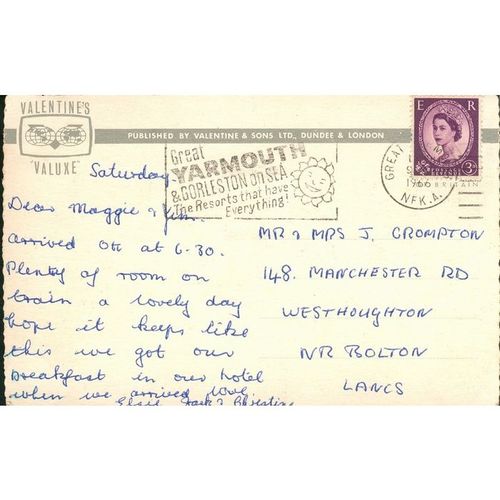 VALENTINE'S
"VALUXE"
PUBLISHED BY VALENTINE & SONS LTD., DUNDEE & LONDON
E R
3D
GREAT
1966
NFK. A.
Great
YARMOUTH
& GORLESTON ON SEA
The Resorts that have
Everything!
Saturday
Dear Maggie & Jim.
arrived OK at 6-30.
Plenty of room on
train a lovely day
hope it keeps like
this we got our
breakfast in our hotel
when we arrived love
Elsie Jack & Christine
MR & MRS J. CROMPTON
148. MANCHESTER RD
WESTHOUGHTON
NR BOLTON
LANCS